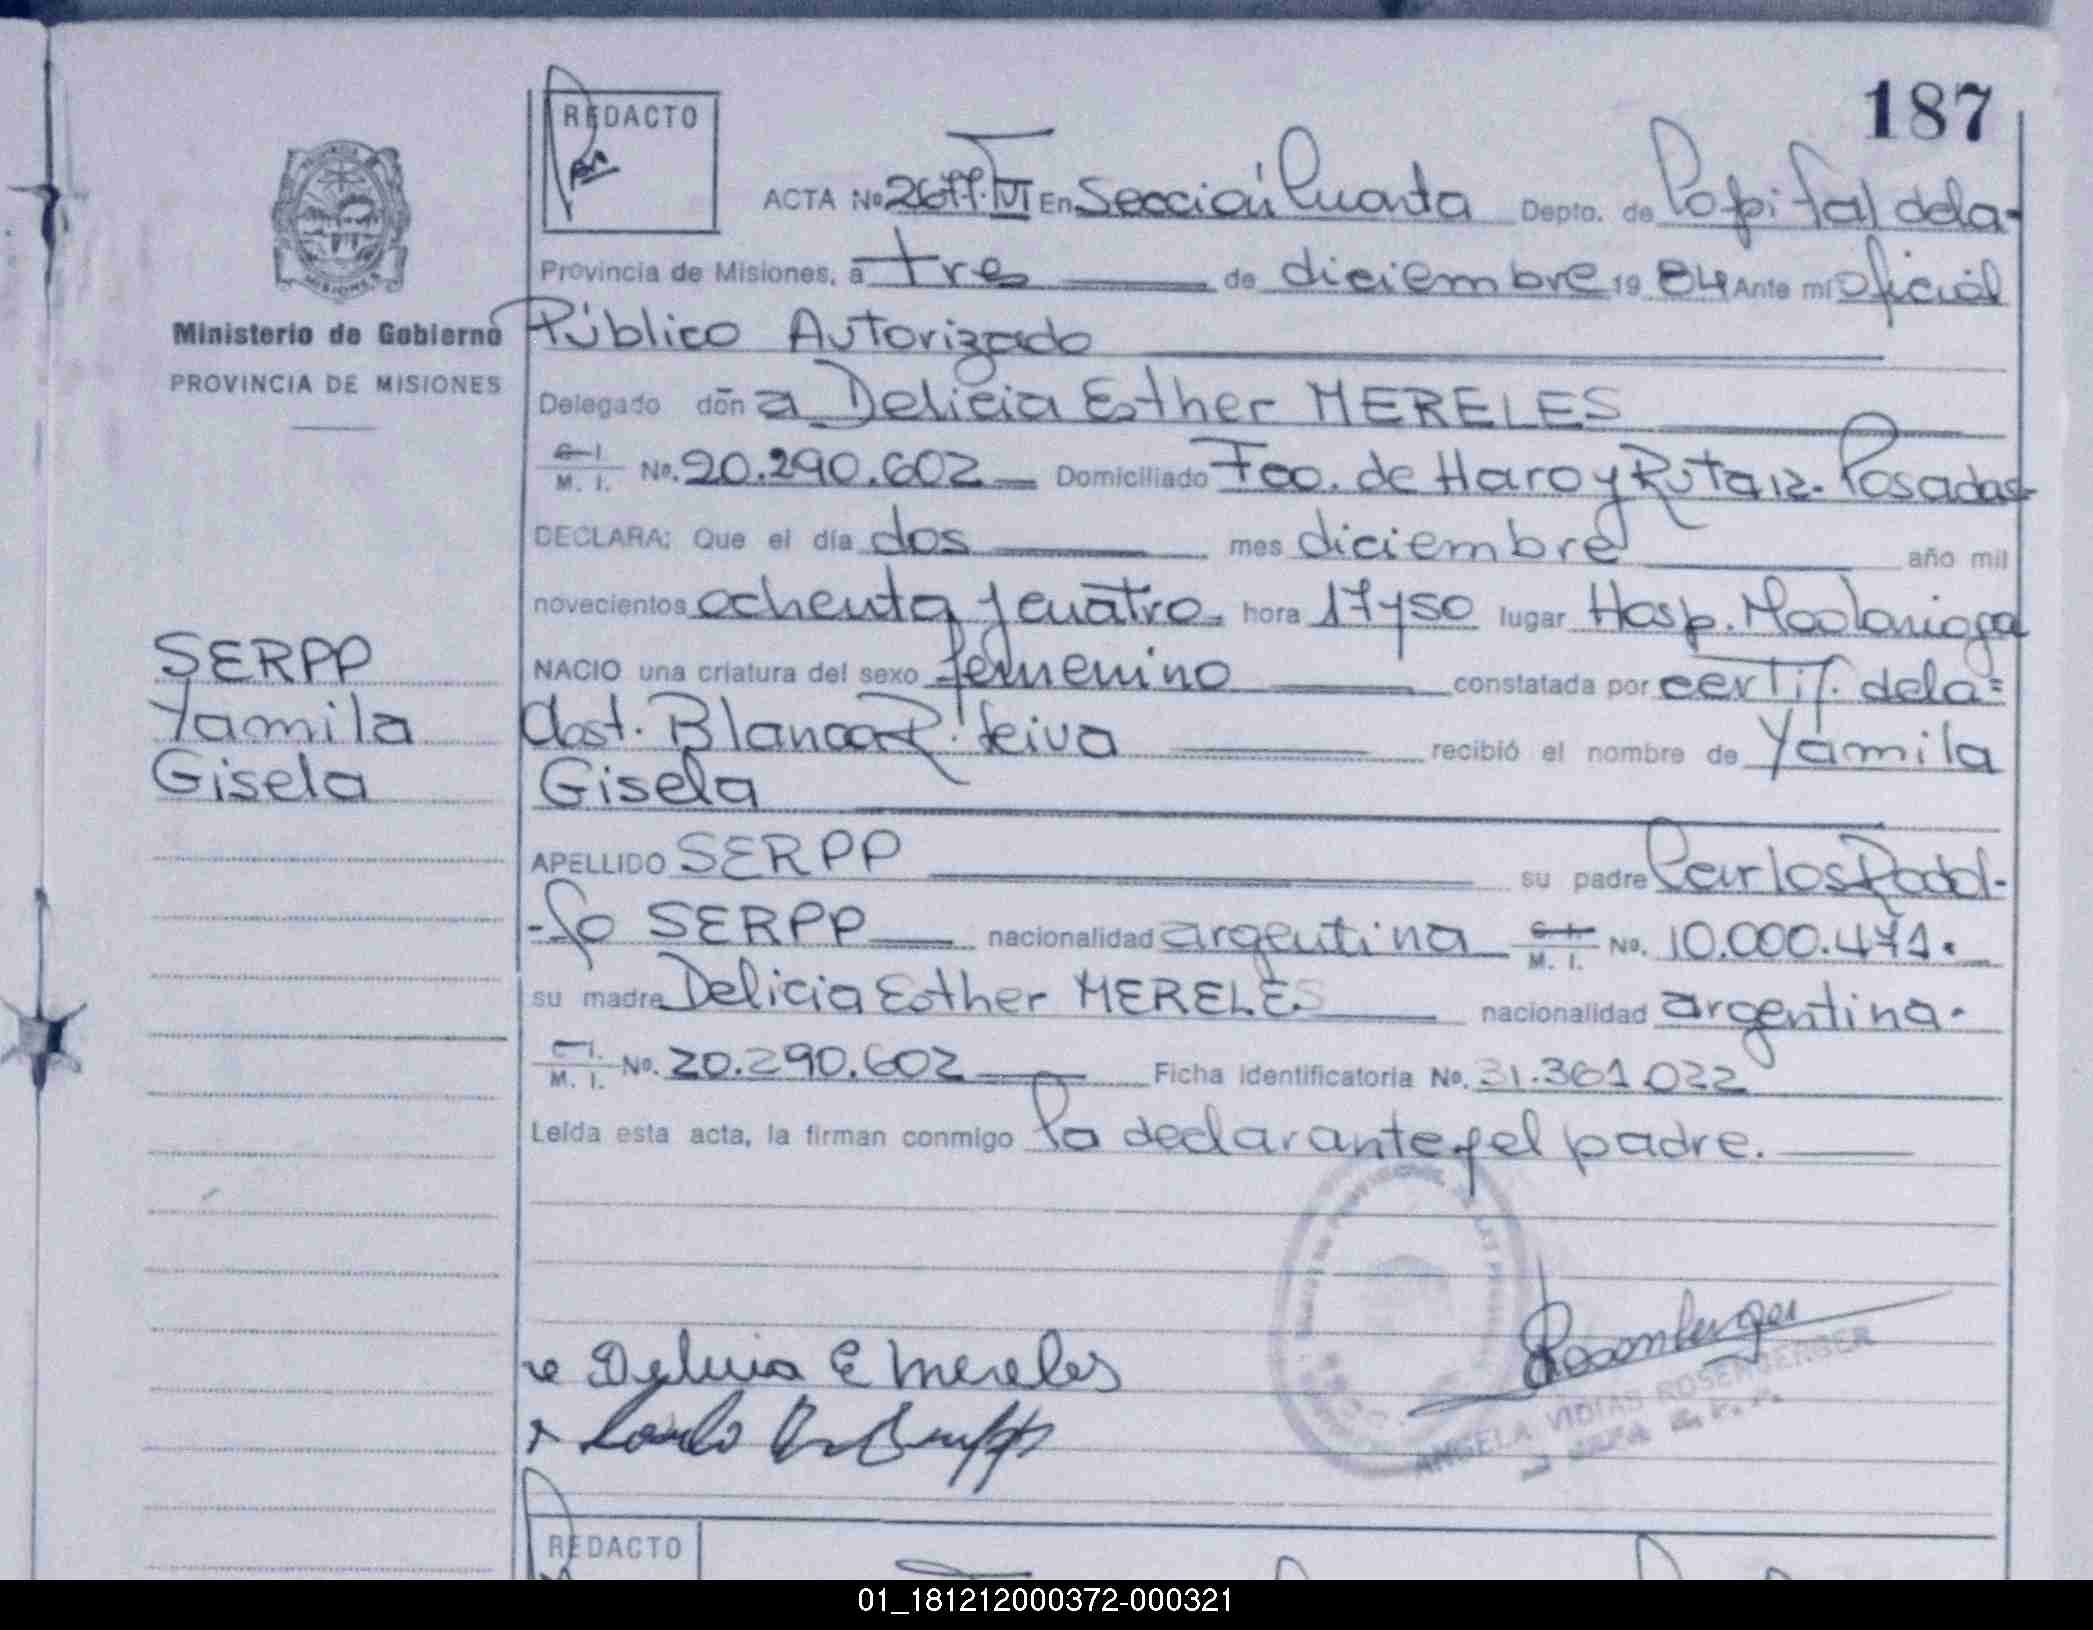 187
REDACTO
ACTA No 2677. T VI En Sección Cuarta Depto. de Capital de la
Provincia de Misiones, a tres de diciembre 19 84 Ante mi Oficial
Ministerio de Gobierno
PROVINCIA DE MISIONES
Público Autorizado
Delegado dōn a Delicia Esther MERELES
C. I. M. I. No. 20.290.602 Domiciliado Fco. de Haro y Ruta 12. Posadas
DECLARA: Que el día dos mes diciembre año mil
novecientos ochenta y cuatro. hora 17 y 50 lugar Hosp. Madariaga
SERPP
Yamila
Gisela
NACIO una criatura del sexo femenino constatada por certif. de la =
Obst. Blanca R. Leiva recibió el nombre de Yamila
Gisela
APELLIDO SERPP su padre Carlos Rodol-
-fo SERPP nacionalidad argentina C. I. M. I. No. 10.000.471.
su madre Delicia Esther MERELES nacionalidad argentina.
C. I. M. I. No. 20.290.602 Ficha identificatoria No. 31.361.022
Leída esta acta, la firman conmigo la declarante y el padre.
E Mereles
Rosemberger
ANGELA VIDIAS ROSEMBERGER
REDACTO
01_181212000372-000321